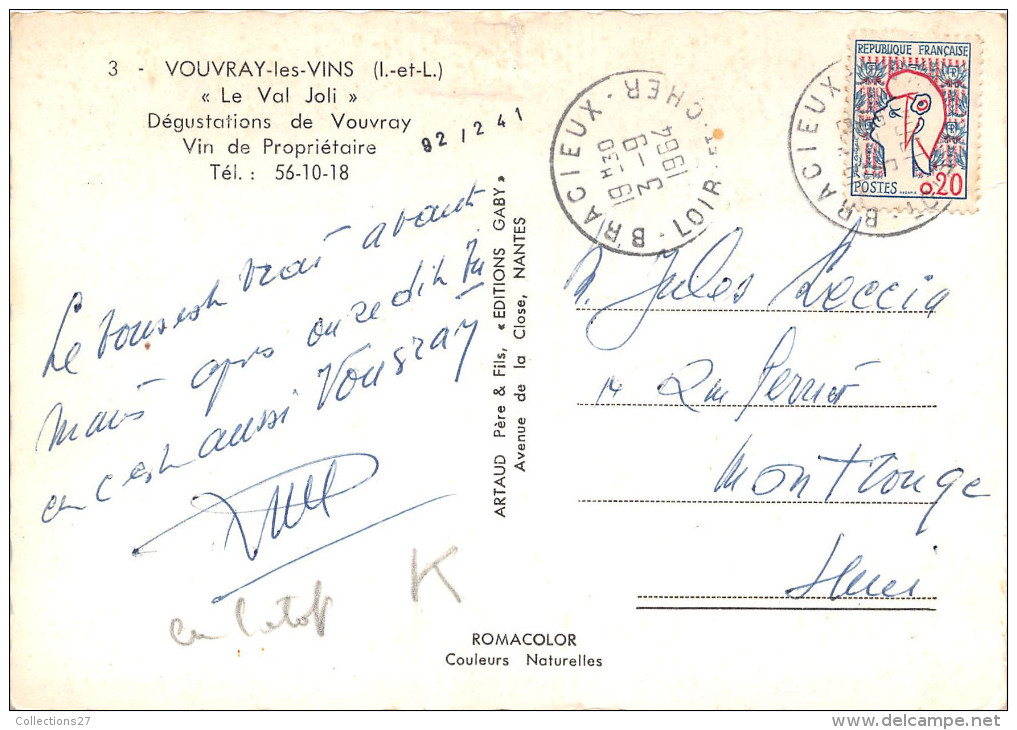 3 - VOUVRAY-les-VINS (I.-et-L.)
« Le Val Joli »
Dégustations de Vouvray
Vin de Propriétaire
Tél. : 56-10-18
92 / 2 41
Le tout est vrai avant
mais après onze dit Tu
en c'est aussi Vouvray
K
ARTAUD Père & Fils, « EDITIONS GABY »
Avenue de la Close, NANTES
ROMACOLOR
Couleurs Naturelles
BRACIEUX
LOIR-ET-CHER
16 H 30
9 - 3
1964
BRACIEUX
REPUBLIQUE FRANÇAISE
POSTES
0,20
M. Jules Leccia
14 Rue Perrier
Montrouge
Seine
Collections27
delcampe.net